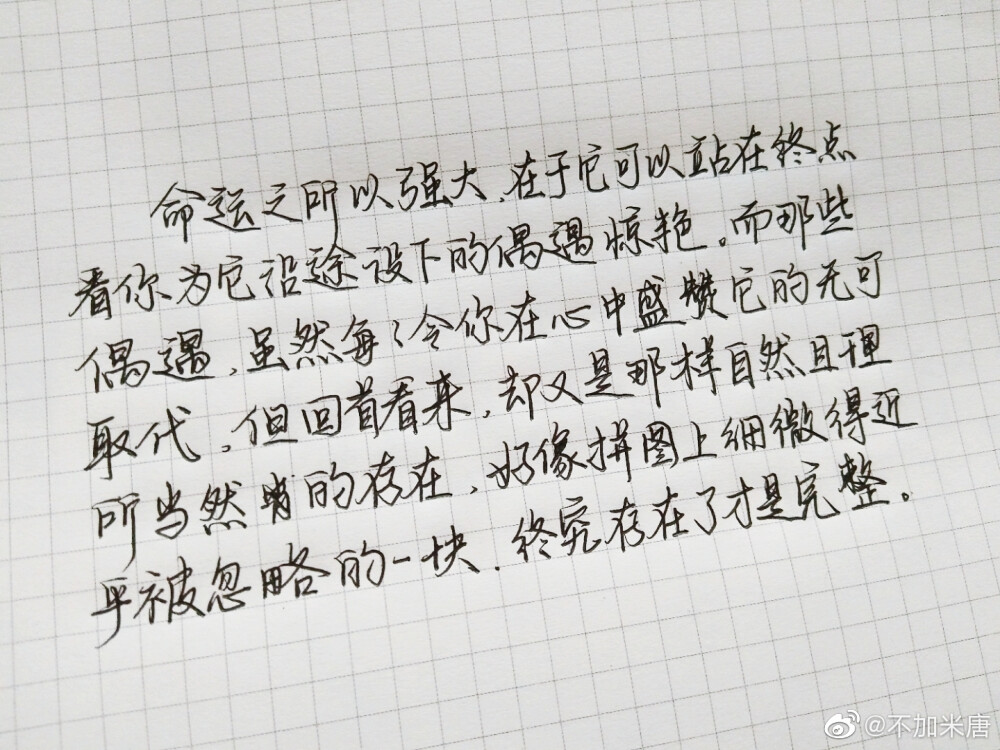 命运之所以强大,在于它可以站在终点
看你为它沿途设下的偶遇惊艳。而那些
偶遇,虽然每每令你在心中盛赞它的无可
取代,但回首看来,却又是那样自然且理
所当然的存在,好像拼图上细微得近
乎被忽略的一块,终究存在了才是完整。
@不加米唐